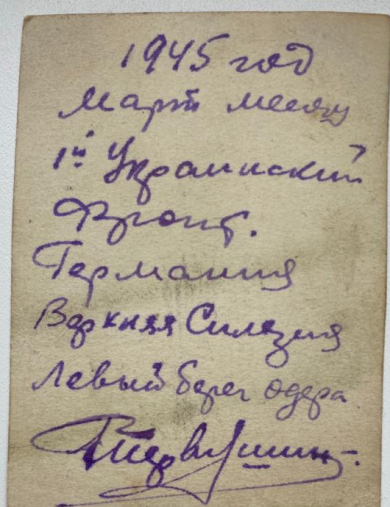 1945 год
Март месяц
1й Украинский
Фронт.
Германия
Верхняя Силезия
Левый берег одера
Первушин